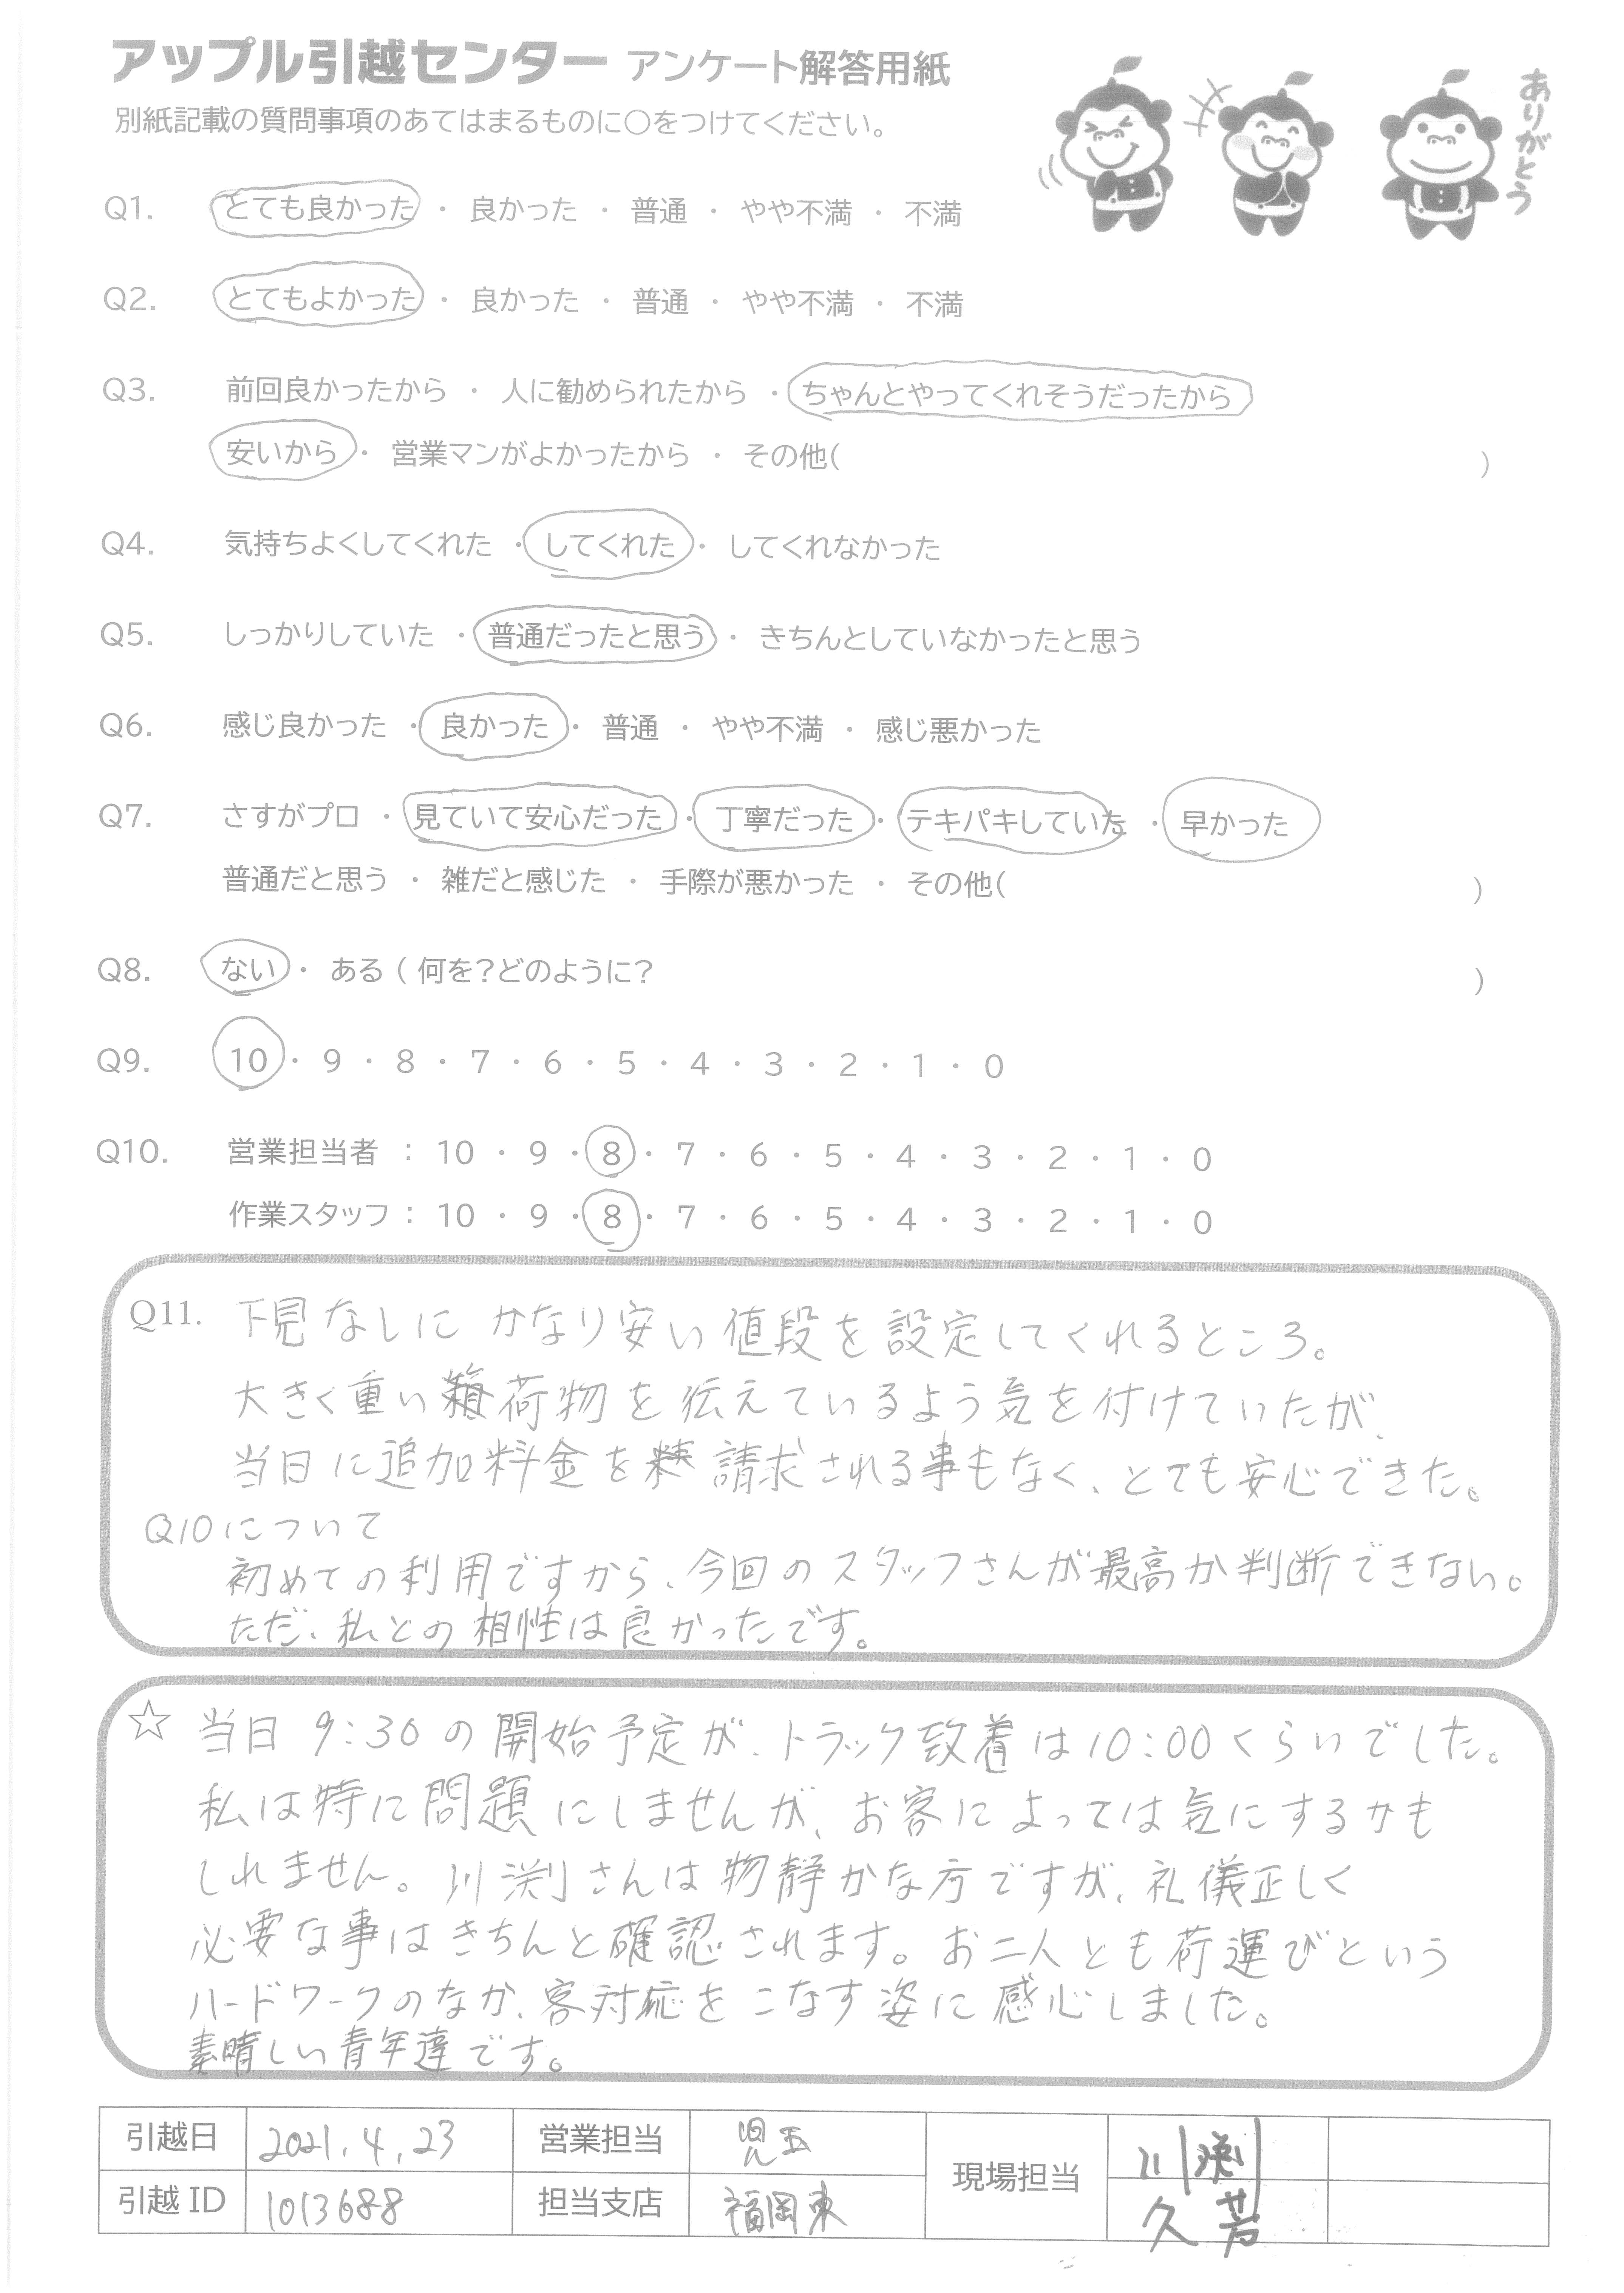 アップル引越センター アンケート解答用紙
別紙記載の質問事項のあてはまるものに○をつけてください。
ありがとう
Q1. とても良かった ・ 良かった ・ 普通 ・ やや不満 ・ 不満
Q2. とてもよかった ・ 良かった ・ 普通 ・ やや不満 ・ 不満
Q3. 前回良かったから ・ 人に勧められたから ・ ちゃんとやってくれそうだったから
安いから ・ 営業マンがよかったから ・ その他( )
Q4. 気持ちよくしてくれた ・ してくれた ・ してくれなかった
Q5. しっかりしていた ・ 普通だったと思う ・ きちんとしていなかったと思う
Q6. 感じ良かった ・ 良かった ・ 普通 ・ やや不満 ・ 感じ悪かった
Q7. さすがプロ ・ 見ていて安心だった ・ 丁寧だった ・ テキパキしていた ・ 早かった
普通だと思う ・ 雑だと感じた ・ 手際が悪かった ・ その他( )
Q8. ない ・ ある ( 何を?どのように? )
Q9. 10 ・ 9 ・ 8 ・ 7 ・ 6 ・ 5 ・ 4 ・ 3 ・ 2 ・ 1 ・ 0
Q10. 営業担当者 : 10 ・ 9 ・ 8 ・ 7 ・ 6 ・ 5 ・ 4 ・ 3 ・ 2 ・ 1 ・ 0
作業スタッフ : 10 ・ 9 ・ 8 ・ 7 ・ 6 ・ 5 ・ 4 ・ 3 ・ 2 ・ 1 ・ 0
Q11. 下見なしに かなり安い値段を設定してくれるところ。
大きく重い荷物を伝えているよう気を付けていたが、
当日に追加料金を請求される事もなく、とても安心できた。
Q10について
初めての利用ですから、今回のスタッフさんが最高か判断できない。
ただ、私との相性は良かったです。
☆ 当日 9:30の開始予定が、トラック到着は10:00くらいでした。
私は特に問題にしませんが、お客によっては気にするかも
しれません。川渕さんは物静かな方ですが、礼儀正しく
必要な事はきちんと確認されます。お二人とも荷運びという
ハードワークのなか、客対応をこなす姿に感心しました。
素晴しい青年達です。
引越日 2021.4.23 営業担当 児玉 現場担当 川渕
引越 ID 1013688 担当支店 福岡東 久芳